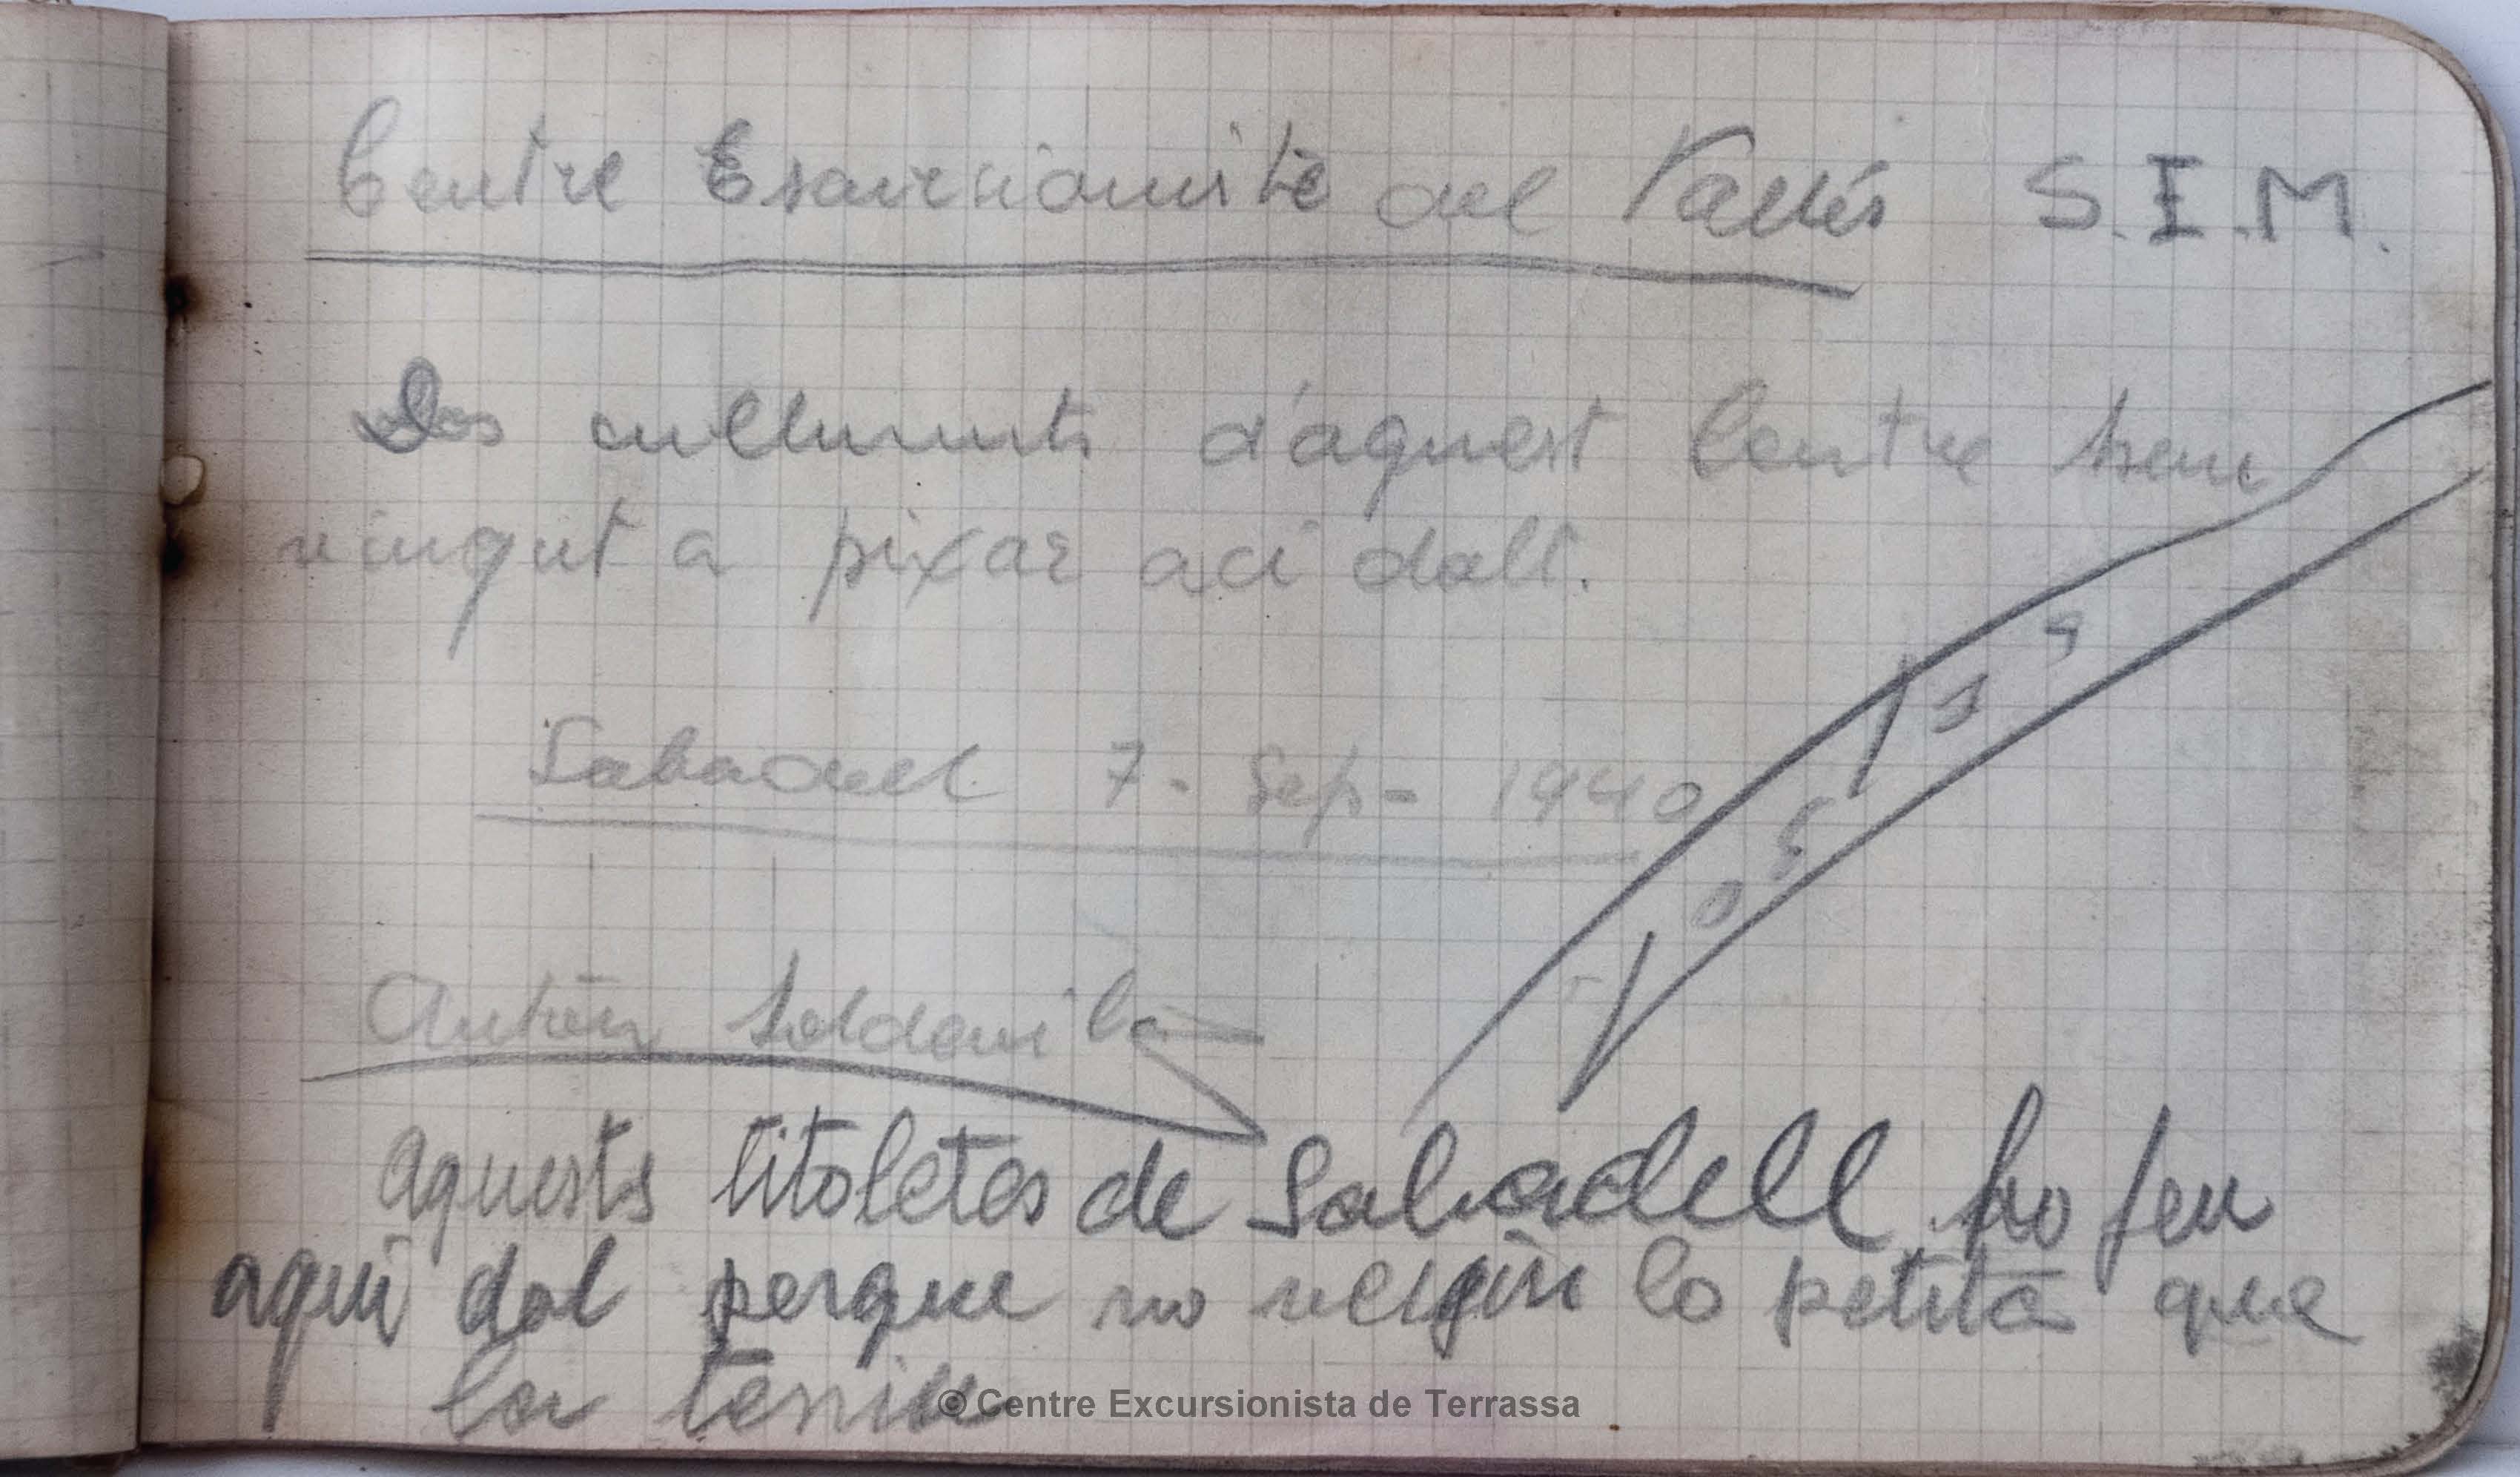 Centre Escursionista del Vallés S.I.M.
Dos cullununts d'aquest Centre hem
vingut a pixar aci dalt.
Sabadell 7 - Sep - 1940
Antón Soldevila
aquests titoletes de Sabadell ho feu
aqui dal perque no veigin lo petita que
la teniu
© Centre Excursionista de Terrassa